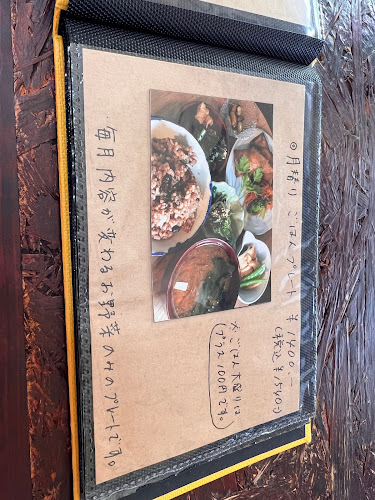 ◎月替り ごはんプレート ¥1400.-
(税込¥1540)
※ごはん大盛りは
プラス100円です。
毎月内容が変わるお野菜のみのプレートです。